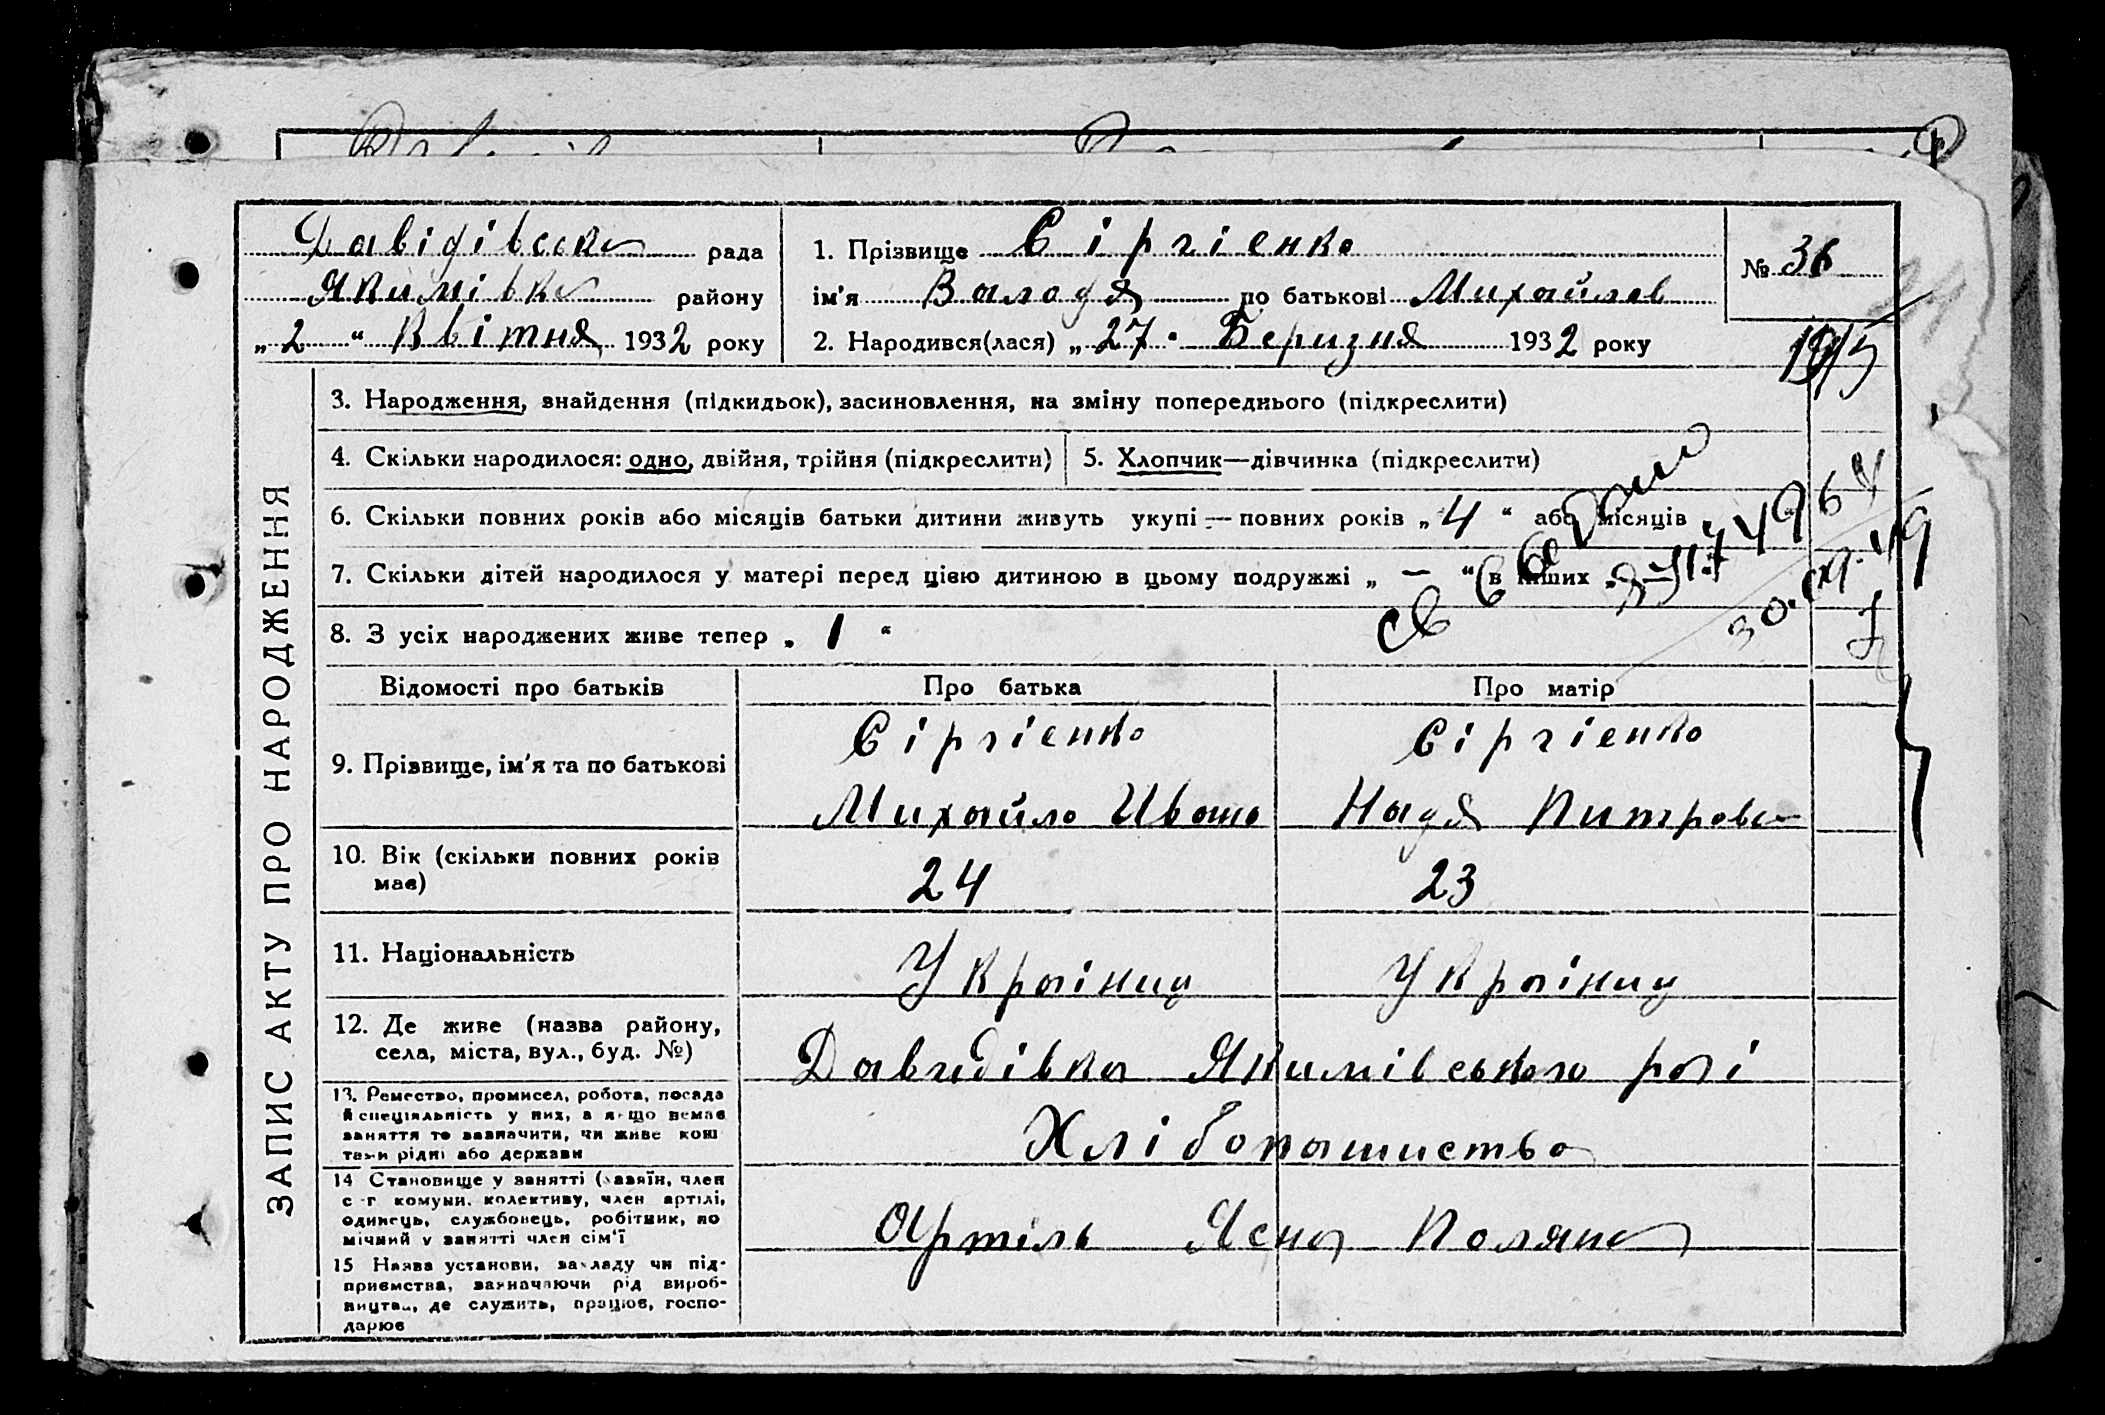 Давідівска рада
Якимівка району
„2“ Квітня 1932 року
1. Прізвище Сіргієнко
ім'я Валодя по батькові Михайлов
2. Народився(лася) „27“ Беризня 1932 року
№ 36
ЗАПИС АКТУ ПРО НАРОДЖЕННЯ
3. Народження, знайдення (підкидьок), засиновлення, на зміну попереднього (підкреслити)
4. Скільки народилося: одно, двійня, трійня (підкреслити)
5. Хлопчик—дівчинка (підкреслити)
6. Скільки повних років або місяців батьки дитини живуть укупі — повних років „4“ або місяців
7. Скільки дітей народилося у матері перед цією дитиною в цьому подружжі „—“ в інших
8. З усіх народжених живе тепер „1“
Відомості про батьків Про батька Про матір
9. Прізвище, ім'я та по батькові
Сіргієнко Сіргієнко
Михайло Ивано Надя Питровн
10. Вік (скільки повних років
має)
24 23
11. Національність
Украіниц Украіниц
12. Де живе (назва району,
села, міста, вул., буд. №)
Давидівка Якимівського раі
13. Ремество, промисел, робота, посада
й спеціяльність у них, а якщо немає
заняття то зазначити, чи живе кош
тами рідні або держави
Хлібопашиство
14 Становище у занятті (хазяїн, член
с-г комуни, колективу, член артілі,
одинець, службовець, робітник, по
мічний у занятті член сім'ї
Артіль Ясна Поляна
15 Назва установи, закладу чи під-
приємства, зазначаючи рід вироб-
ництва, де служить, працює, госпо-
дарює